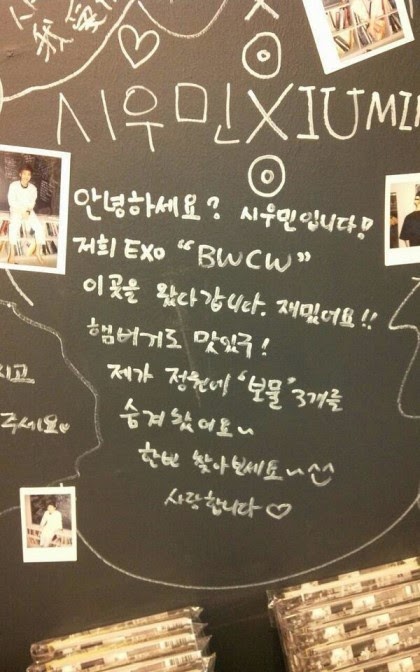 我
시우민 XIUMIN
안녕하세요? 시우민입니다!
저희 EXO "BWCW"
이곳을 왔다갑니다. 재밌어요!!
햄버거도 맛있구!
제가 정원에 "보물" 3개를
숨겨놨어요~
한번 찾아보세요~^^
사랑합니다♡
시고
주세요